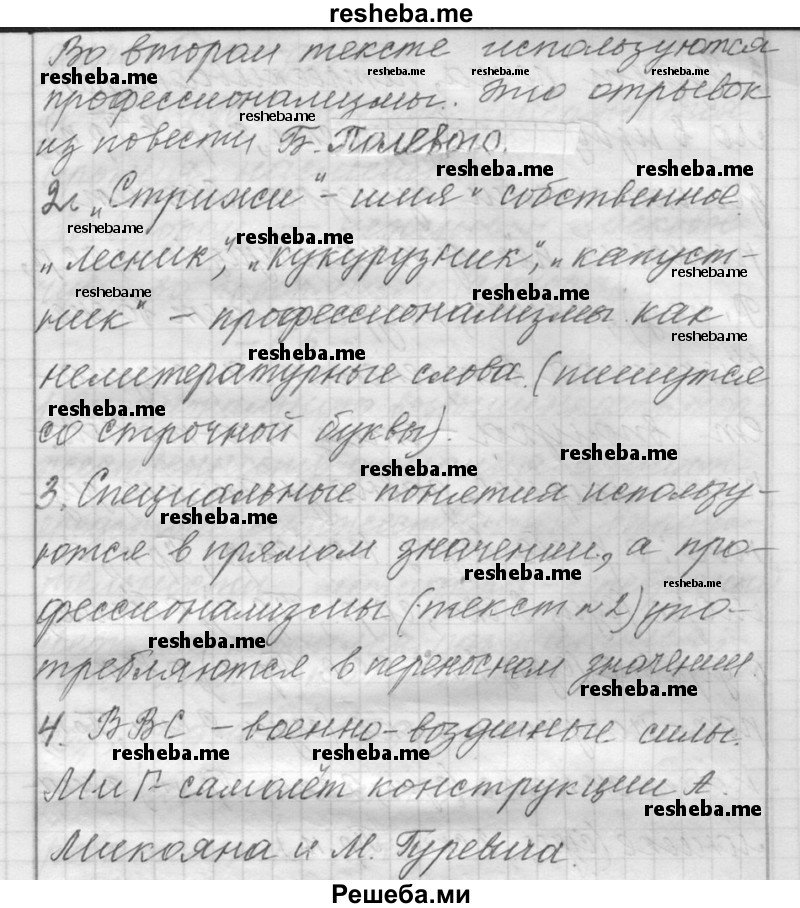 resheba.me
Во втором тексте используются
resheba.me resheba.me resheba.me resheba.me
профессионализмы. Это отрывок
resheba.me
из повести Б. Полевого.
resheba.me resheba.me
2. „Стрижи" – имя собственное.
resheba.me resheba.me
„лесник", „кукурузник", „капуст-
resheba.me
resheba.me resheba.me
ник" – профессионализмы как
resheba.me
resheba.me
нелитературные слова. (пишутся
resheba.me
со строчной буквы).
resheba.me
resheba.me
3. Специальные понятия использу-
resheba.me
ются в прямом значении, а про-
resheba.me resheba.me
фессионализмы (текст №2) упо-
resheba.me
требляются в переносном значении.
resheba.me
4. ВВС – военно-воздушные силы.
resheba.me resheba.me
МиГ – самолёт конструкции А.
resheba.me
Микояна и М. Гуревича.
Решеба.ми